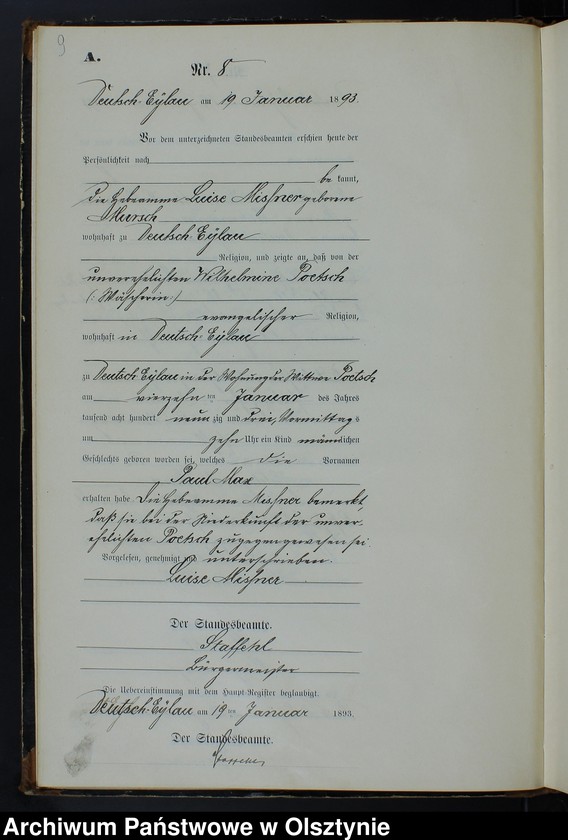 9
A.
Nr. 8
Deutsch-Eylau am 19 Januar 1893.
Vor dem unterzeichneten Standesbeamten erschien heute der
Persönlichkeit nach
be kannt,
die Hebeamme Luise Missner geborene
Mursch
wohnhaft zu Deutsch-Eylau
Religion, und zeigte an, daß von der
unverehelichten Wilhelmine Poetsch
(: Wäscherin :)
evangelischer Religion,
wohnhaft in Deutsch-Eylau
zu Deutsch Eylau in der Wohnung der Wittwe Poetsch
am vierzehn ten Januar des Jahres
tausend acht hundert neun zig und drei, Vormittag s
um zehn Uhr ein Kind männlichen
Geschlechts geboren worden sei, welches die Vornamen
Paul Max
erhalten habe. Die Hebeamme Missner bemerkt,
daß sie bei der Niederkunft der unver-
ehelichten Poetsch zugegen gewesen sei.
Vorgelesen, genehmigt und unterschrieben.
Luise Missner
Der Standesbeamte.
Staffehl
Bürgermeister
Die Uebereinstimmung mit dem Haupt-Register beglaubigt.
Deutsch-Eylau am 19 ten Januar 1893.
Der Standesbeamte.
Staffehl
Archiwum Państwowe w Olsztynie